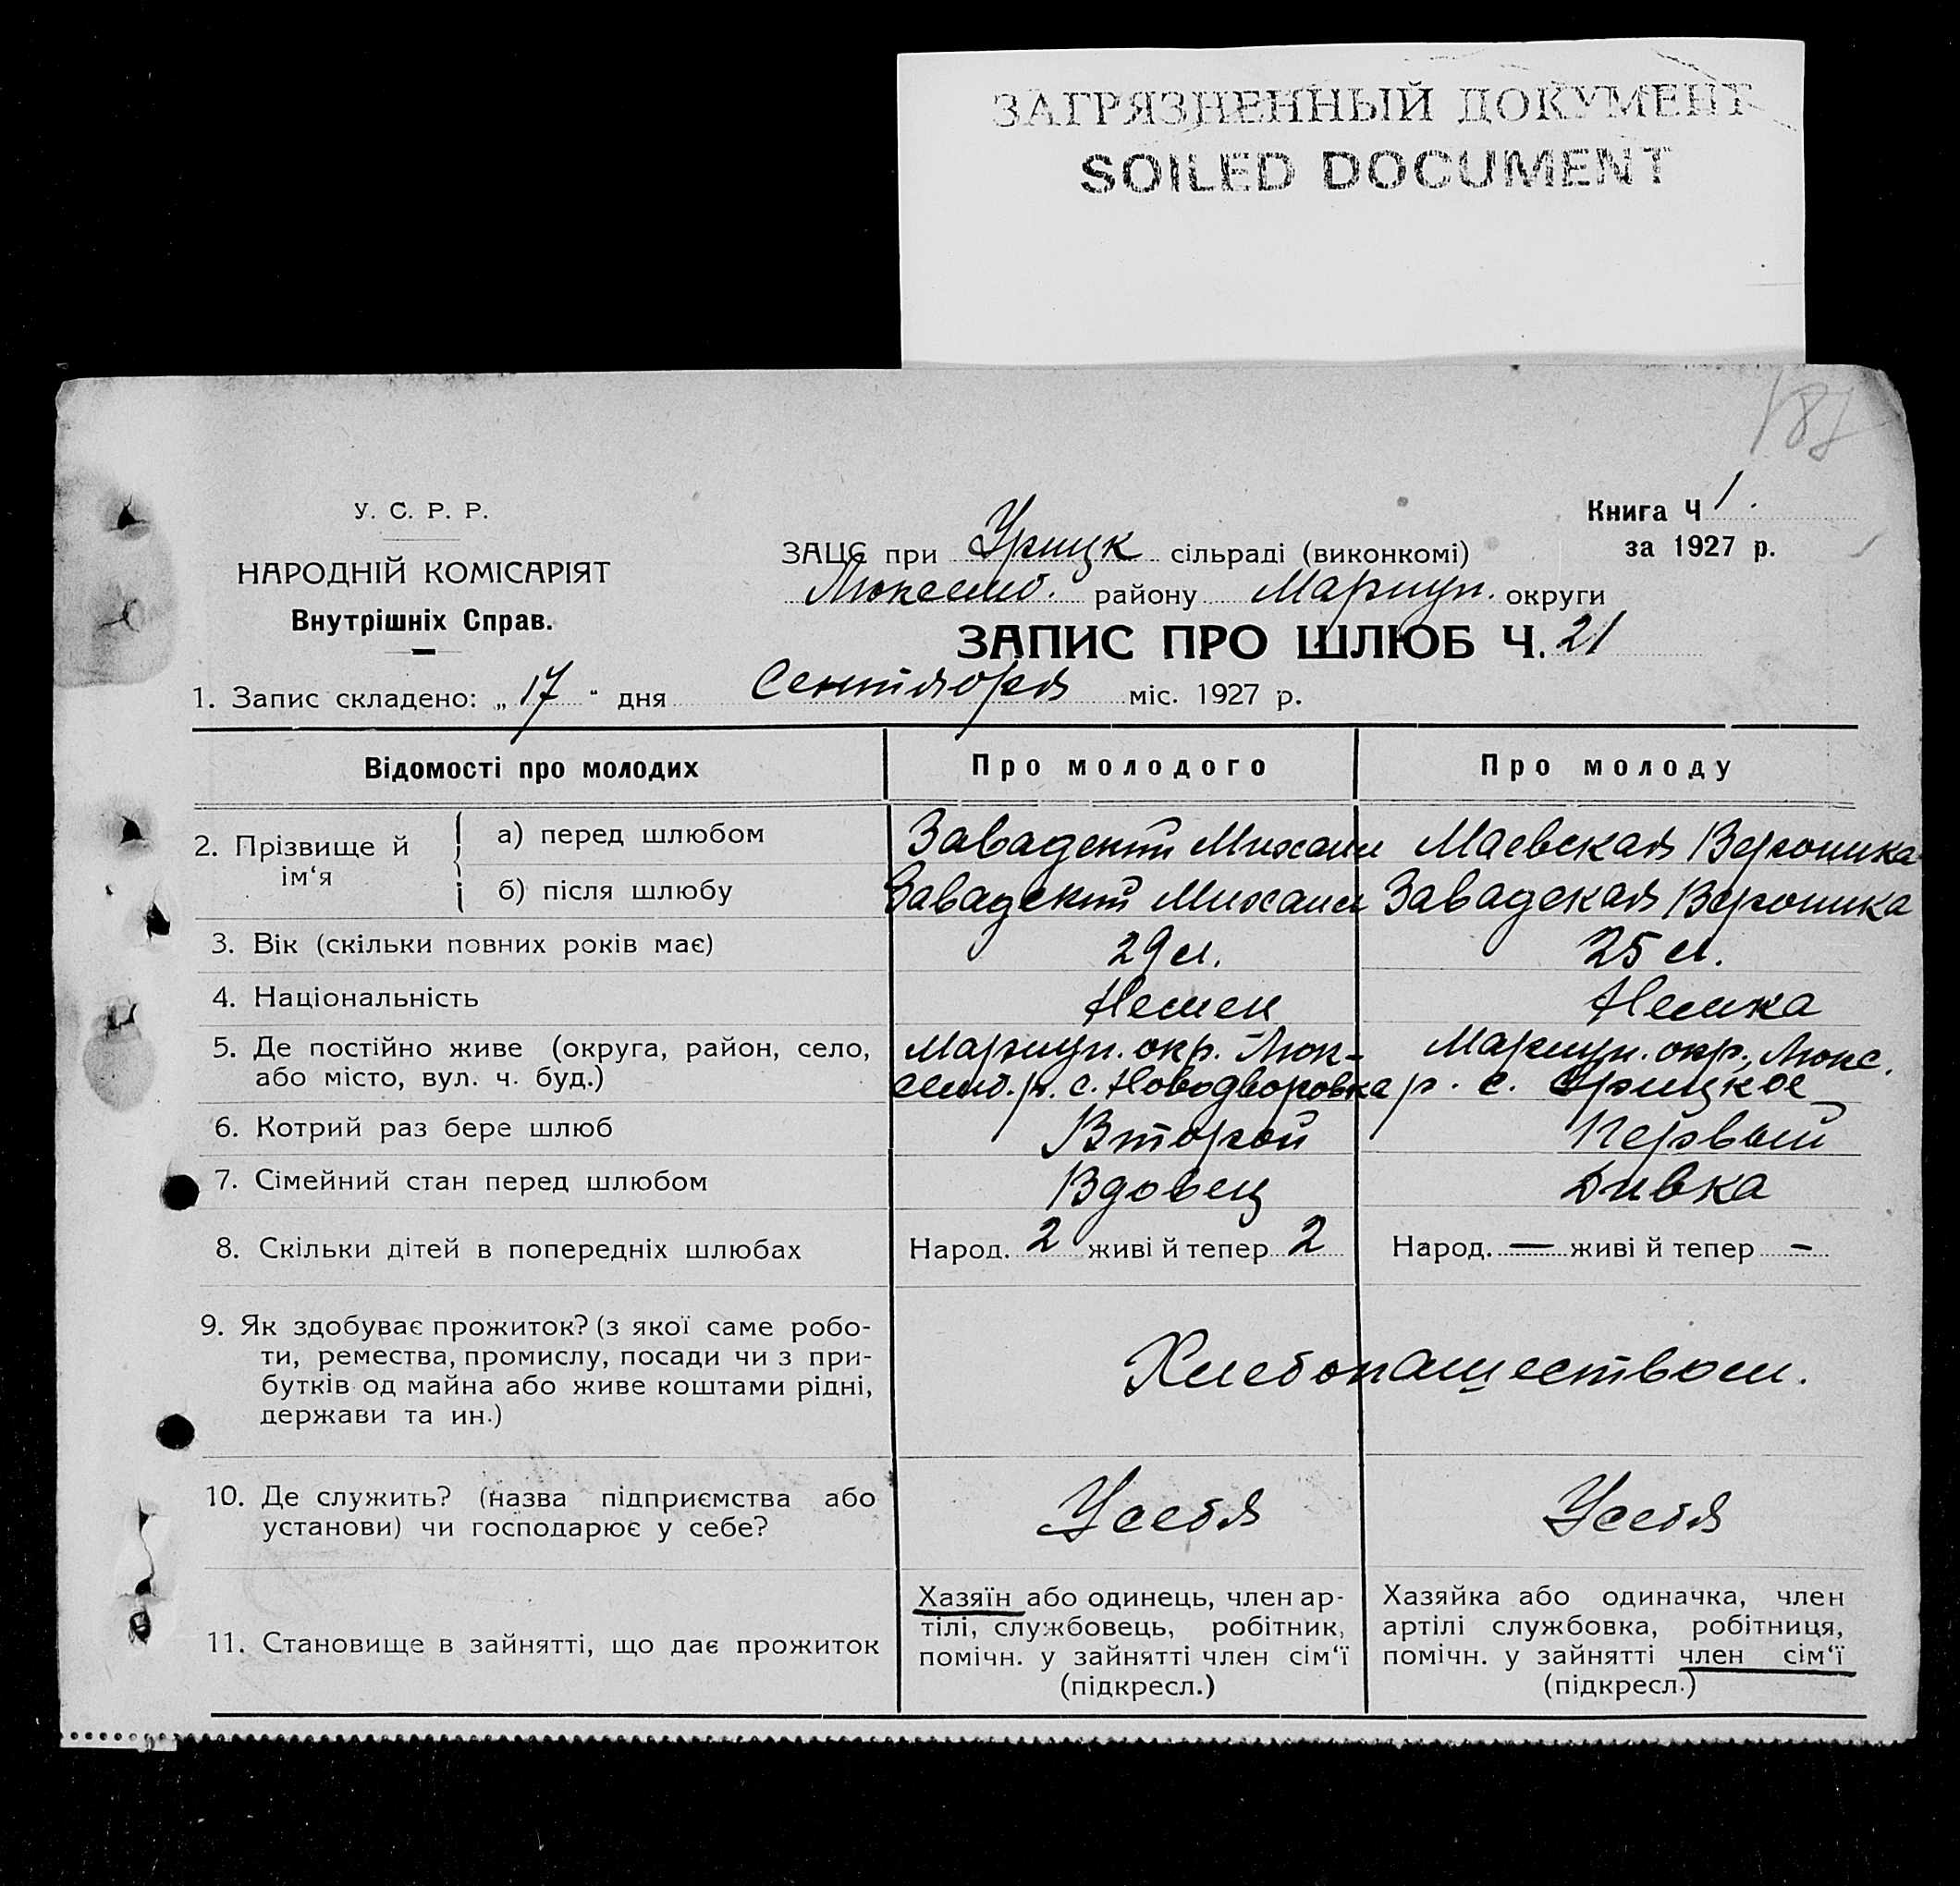 ЗАГРЯЗНЕННЫЙ ДОКУМЕНТ
SOILED DOCUMENT
187
У. С. Р. Р.
НАРОДНІЙ КОМІСАРІЯТ
Внутрішніх Справ.
Книга Ч 1.
за 1927 р.
ЗАЦС при Урицк сільраді (виконкомі)
Люксемб. району Мариуп. округи
ЗАПИС ПРО ШЛЮБ Ч. 21
1. Запис складено: „ 17 " дня Сентября міс. 1927 р.
Відомості про молодих Про молодого Про молоду
2. Прізвище й ім‘я
а) перед шлюбом Завадский Михаил Маевская Вероника
б) після шлюбу Завадский Михаил Завадская Вероника
3. Вік (скільки повних років має) 29 л. 25 л.
4. Національність Немец Немка
5. Де постійно живе (округа, район, село, Мариуп. окр. Люк- Мариуп. окр., Люкс.
або місто, вул. ч. буд.) семб. р. с. Новодворовка р. с. Урицкое
6. Котрий раз бере шлюб Второй Первый
7. Сімейний стан перед шлюбом Вдовец Дивка
8. Скільки дітей в попередніх шлюбах Народ. 2 живі й тепер 2 Народ. — живі й тепер -
9. Як здобуває прожиток? (з якої саме робо-
ти, ремества, промислу, посади чи з при-
бутків од майна або живе коштами рідні,
держави та ин.)
Хлебопашеством.
10. Де служить? (назва підприємства або
установи) чи господарює у себе?
У себя У себя
11. Становище в зайнятті, що дає прожиток
Хазяїн або одинець, член ар-
тілі, службовець, робітник,
помічн. у зайнятті член сім‘ї
(підкресл.)
Хазяйка або одиначка, член
артілі службовка, робітниця,
помічн. у зайнятті член сім‘ї
(підкресл.)